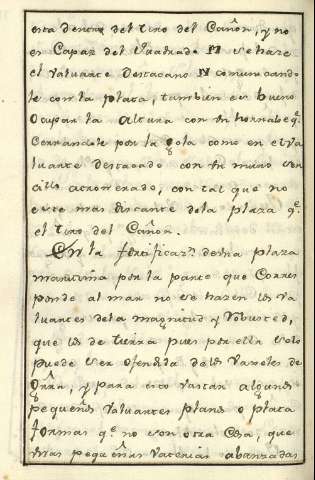 esta dentro del tiro del Cañon, y no
es Capaz del Quadrado N se hare
el Valuarte Destacano N comunicando
le con la plaza, tambien es bueno
Ocupar la Altura con Vn hornabeq.e
Cerrandole por la gola como en el va
luarte destacado con Vn muro sen
cillo atronerado, con tal que no
este mas distante dela plaza q.e
el tiro del Cañon.
En la fortificaz.n de una plaza
maritima por la parte que Corres
ponde al mar no se hazen los va
luartes dela magnitud y Robusted,
que los de tierra pues por ella solo
puede ser ofendida delos Vaxeles de
Grra, y para esto vastan algunos
pequeños Valuartes planos o plata
formas q.e no son otra Cosa, que
Vnas pequeñas Vaterias abanzadas